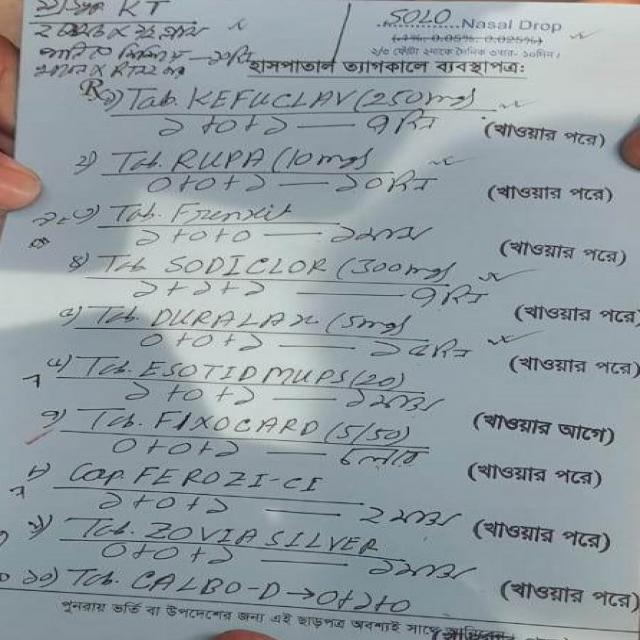 KT
SOLO Nasal Drop
(.1%, 0.05%, 0.025%)
হাসপাতাল ত্যাগকালে ব্যবস্থাপত্র:
R
১) Tab. KEFUCLAV (250mg)
১+০+১ — ৭দিন (খাওয়ার পরে)
২) Tab. RUPA (10mg)
০+০+১ — ১০দিন (খাওয়ার পরে)
৩) Tab. Frenxit
১+০+০ — ১মাস (খাওয়ার পরে)
৪) Tab SODICLOR (300mg)
১+১+১ — ৭দিন (খাওয়ার পরে)
৫) Tab. DURALAX (5mg)
০+০+১ — ১৫দিন (খাওয়ার পরে)
৬) Tab. ESOTID MUPS (20)
১+০+১ — ১মাস (খাওয়ার আগে)
৭) Tab. FIXOCARD (5/50)
০+০+১ — চলবে (খাওয়ার পরে)
৮) Cap. FEROZI-CI
১+০+১ — ২মাস (খাওয়ার পরে)
৯) Tab. ZOVIA SILVER
০+০+১ — ১মাস (খাওয়ার পরে)
১০) Tab. CALBO-D → ০+১+০
পুনরায় ভর্তি বা উপদেশের জন্য এই ছাড়পত্র অবশ্যই সাথে